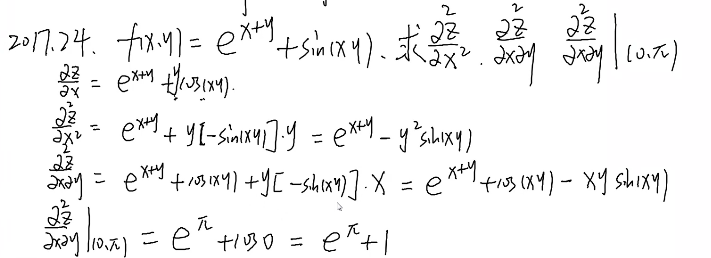 2017.24. f(x,y) = e^{x+y} + sin(xy). 求 ∂²z/∂x². ∂²z/∂x∂y ∂²z/∂x∂y|(0.π)
∂z/∂x = e^{x+y} + y cos(xy).
∂²z/∂x² = e^{x+y} + y[-sin(xy)]·y = e^{x+y} - y² sin(xy)
∂²z/∂x∂y = e^{x+y} + cos(xy) + y[-sin(xy)]·x = e^{x+y} + cos(xy) - xy sin(xy)
∂²z/∂x∂y|(0.π) = e^π + cos0 = e^π + 1